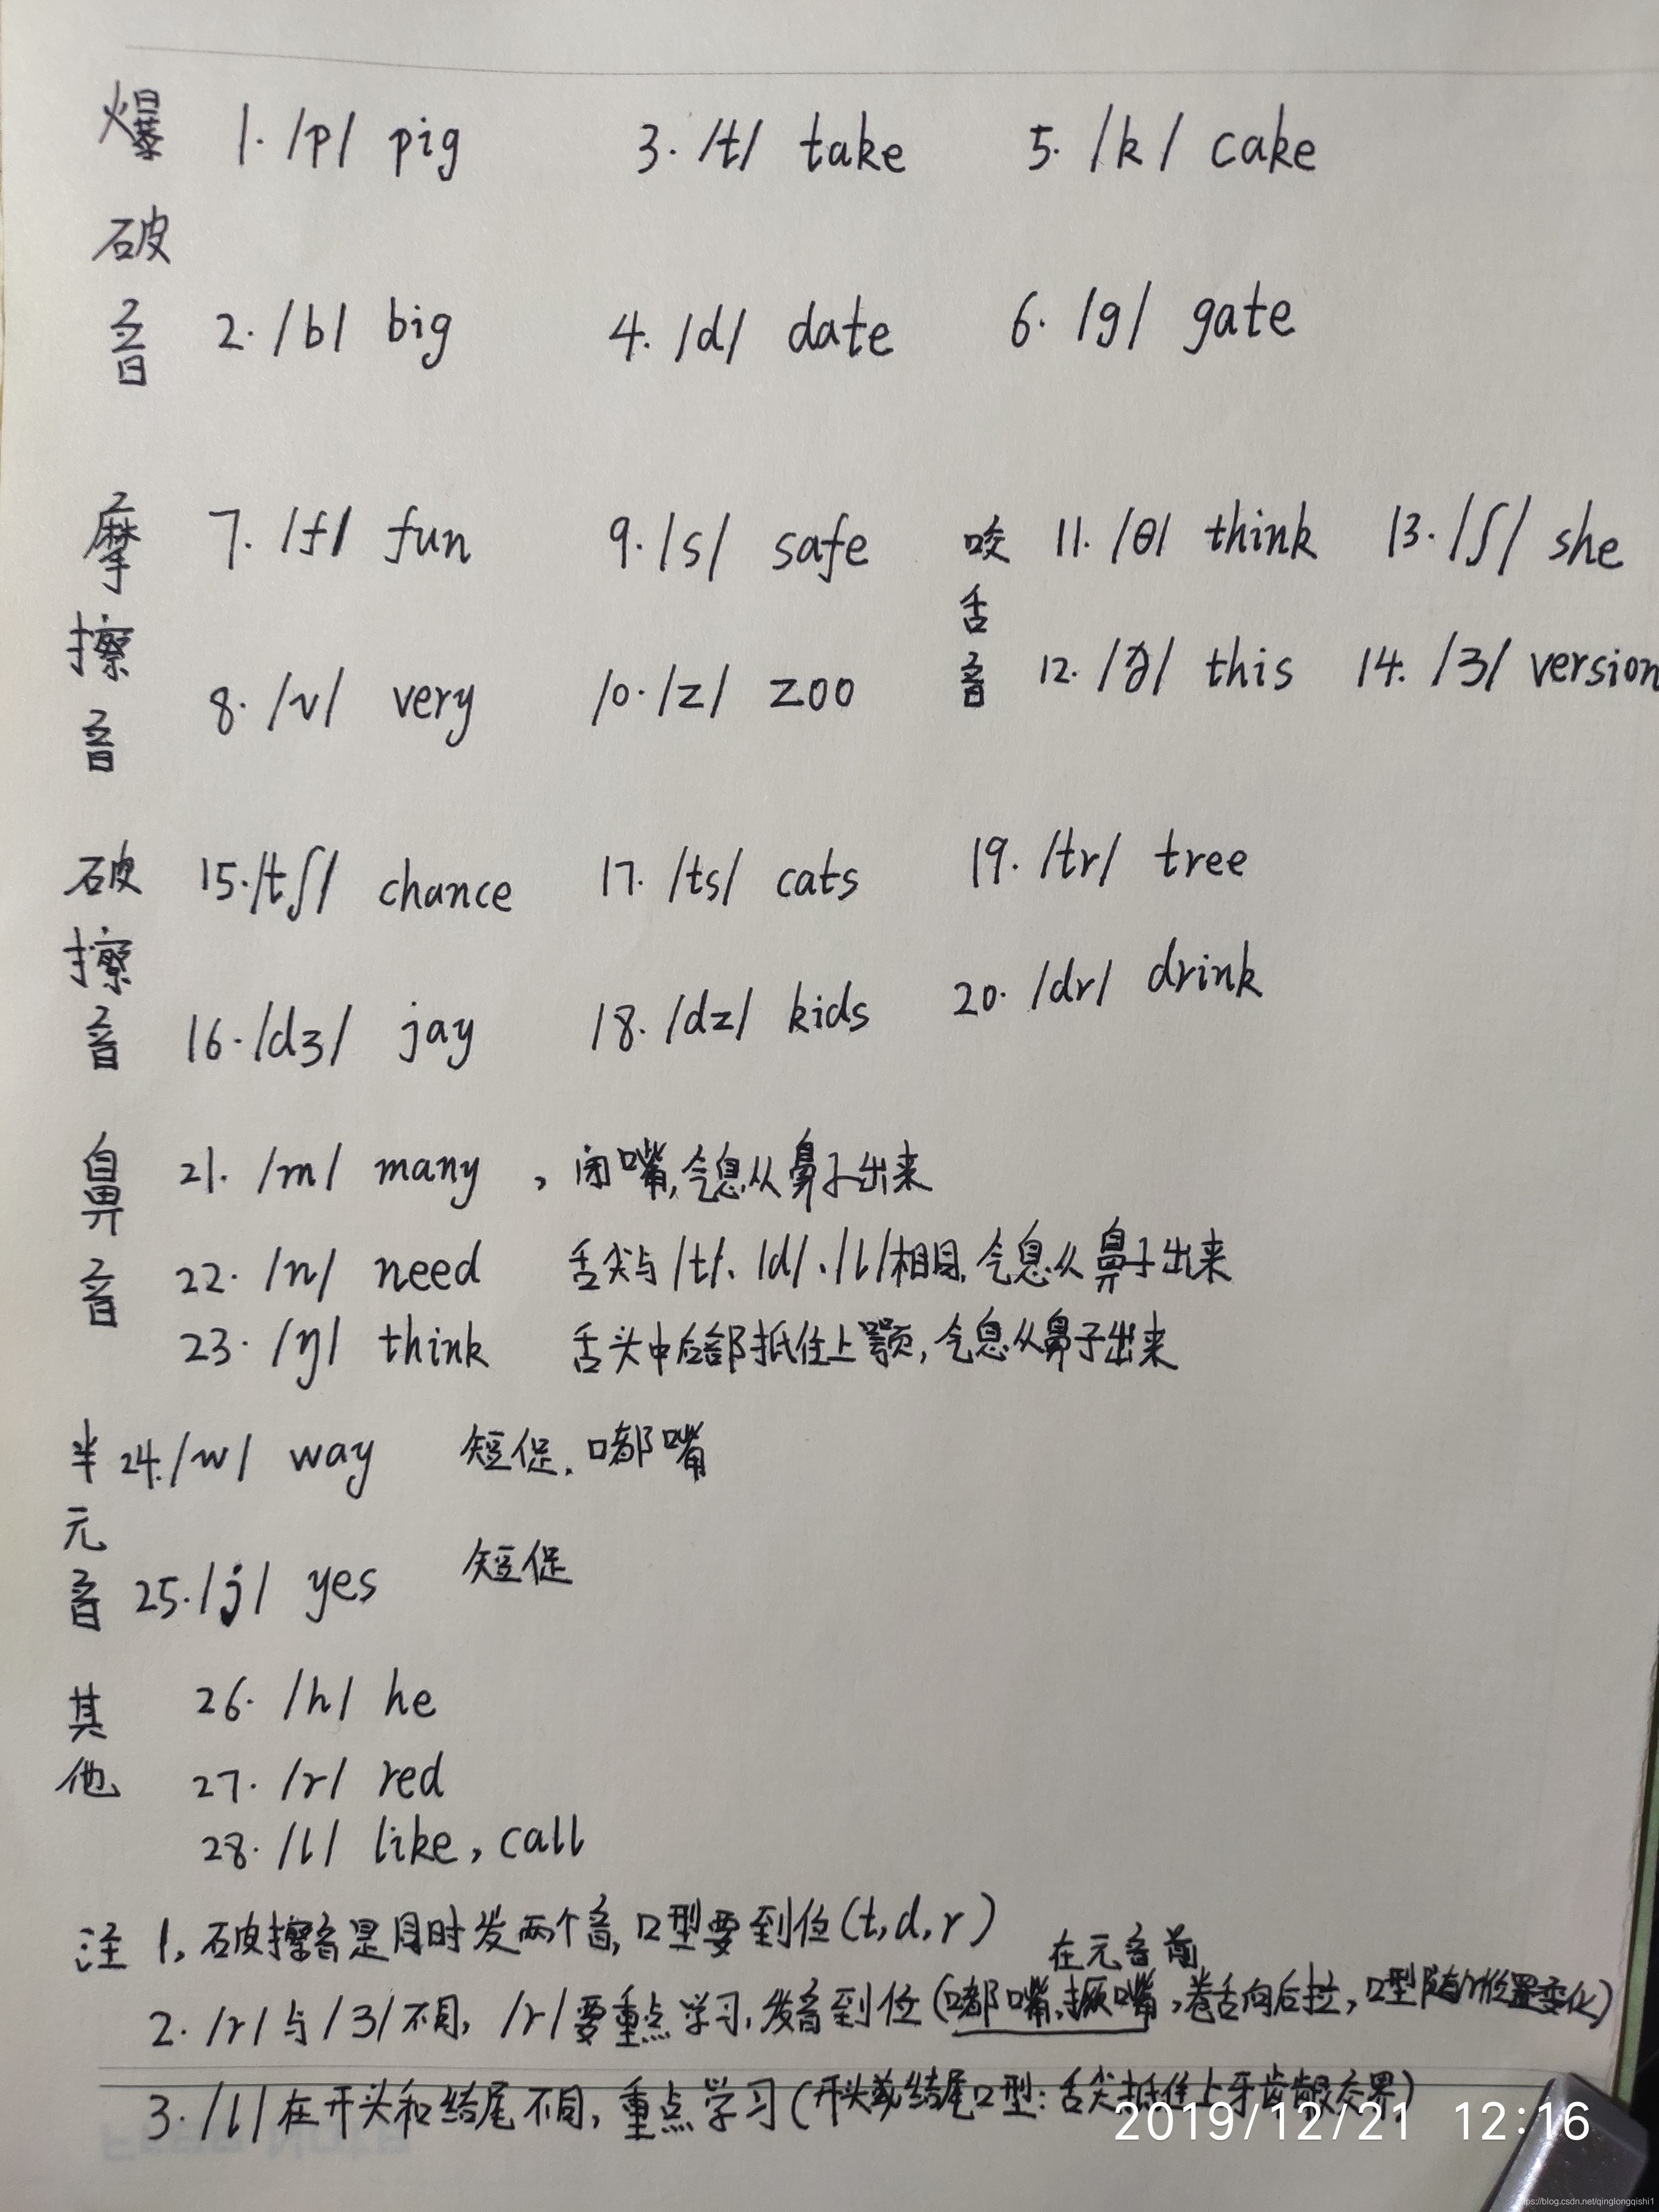 爆破音
1. /p/ pig 3. /t/ take 5. /k/ cake
2. /b/ big 4. /d/ date 6. /g/ gate
摩擦音
7. /f/ fun 9. /s/ safe 咬舌音 11. /θ/ think 13. /ʃ/ she
8. /v/ very 10. /z/ zoo 12. /ð/ this 14. /ʒ/ version
破擦音
15. /tʃ/ chance 17. /ts/ cats 19. /tr/ tree
16. /dʒ/ jay 18. /dz/ kids 20. /dr/ drink
鼻音
21. /m/ many , 闭嘴,气息从鼻子出来
22. /n/ need 舌尖与/t/、/d/、/l/相同,气息从鼻子出来
23. /ŋ/ think 舌头中后部抵住上颚,气息从鼻子出来
半元音
24. /w/ way 短促.嘟嘴
25. /j/ yes 短促
其他
26. /h/ he
27. /r/ red
28. /l/ like, call
注 1, 破擦音是同时发两个音,口型要到位(t,d,r)
在元音前
2. /r/与/ʒ/不同, /r/要重点学习,发音到位(嘟嘴,撅嘴,卷舌向后拉,口型随r位置变化)
3. /l/在开头和结尾不同,重点学习(开头或结尾口型:舌尖抵住上牙齿龈交界)
2019/12/21 12:16
https://blog.csdn.net/qinglongqishi1